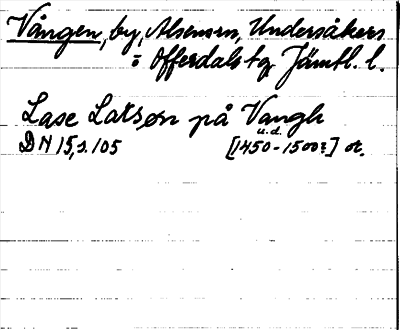 Vången, by, Alsensn, Undersåkers
o. Offerdals tg Jämtl. l.
Lase Larson på Vangh
u.d.
DN 15, s. 105 [1450-1500?] or.